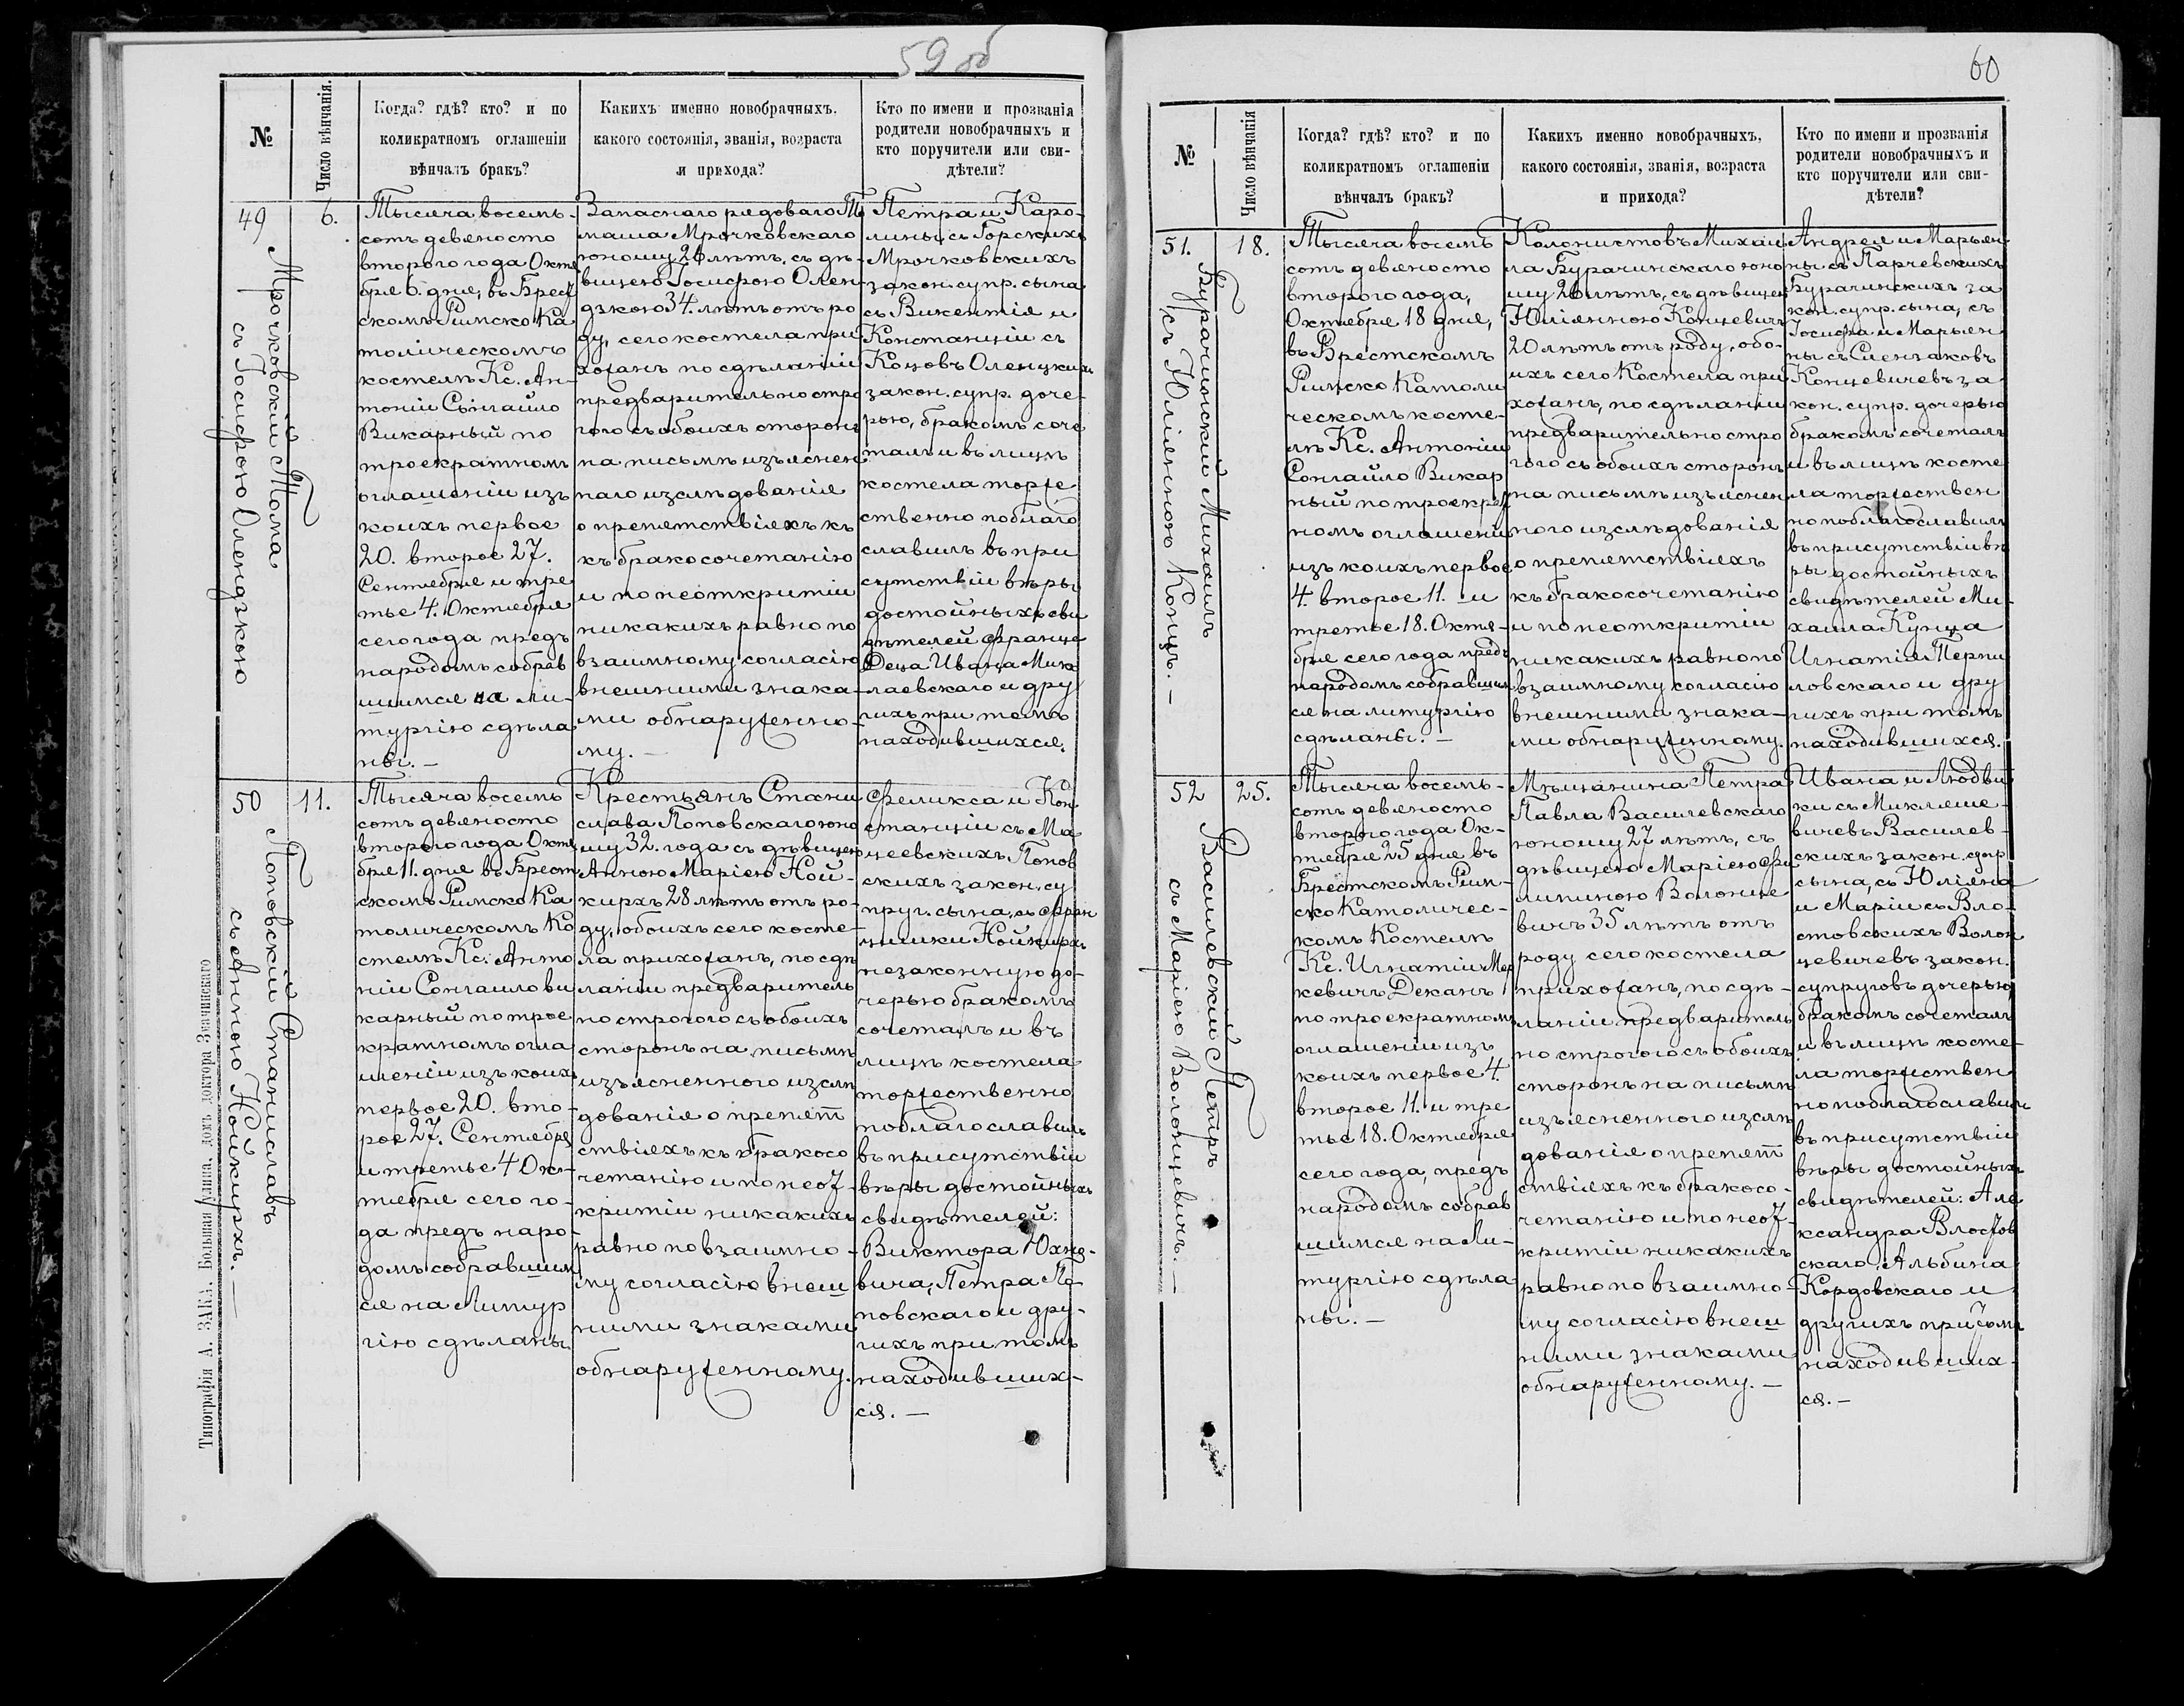 59 об
№
Число вѣнчанія.
Когда? гдѣ? кто? и по
коликратномъ оглашеніи
вѣнчалъ бракъ?
Какихъ именно новобрачныхъ,
какого состоянія, званія, возраста
и прихода?
Кто по имени и прозванія
родители новобрачныхъ и
кто поручители или сви-
дѣтели?
49
Мрочковскій Тома
съ Іосифою Олендзкою
6.
Тысяча восемь-
сотъ девяносто
второго года Октя
бря 6. дня, въ Брест
скомъ Римско Ка
толическомъ
костелѣ Кс. Ан-
тоніи Сонгайло
Викарный по
троекратномъ
оглашеніи изъ
коихъ первое
20. второе 27.
Сентября и тре
тье 4. Октября
сего года предъ
народомъ собрав
шимся на ли-
тургію сдѣла
ны.-
Запаснаго рядоваго То
маша Мрочковскаго
юношу 26 лѣтъ, съ дѣ-
вицею Іосифою Олен-
дзкою 34. лѣтъ отъ ро
ду, сего костела при
хожанъ по сдѣланіи
предварительно стро
гаго съ обоихъ сторонъ
на письмѣ изъяснен
наго изслѣдованія
о препятствіяхъ къ
къ бракосочетанію
и по неоткритіи
никакихъ равно по
взаимному согласію
внешними знака-
ми обнаруженно-
му.-
Петра и Каро-
лины съ Горскихъ
Мрочковскихъ
закон. супр. сына
съ Викентія и
Констанціи съ
Коцовъ Оленцкихъ
закон. супр. доче-
рью, бракомъ соче
талъ и въ лицѣ
костела торже
ственно поблаго
славилъ въ при
сутствіи вѣры
достойныхъ сви
дѣтелей Франца
Деца Ивана Мика
лаевскаго и дру
гихъ при томъ
находившихся.
50
Поповскій Станиславъ
съ Анною Нойкирхъ.-
11.
Тысяча восемь
сотъ девяносто
второго года Октя
бря 11. дня въ Брест
скомъ Римско Ка
толическомъ Ко
стелѣ Кс. Анто
ніи Сонгаило ви
карный по трое
кратномъ огла
шеніи изъ коихъ
первое 20. вто-
рое 27. Сентября
и третье 4 Ок-
тября сего го-
да предъ наро-
домъ собравшим
ся на Литур
гію сдѣланы
Крестьянъ Стани
слава Поповскаго юно
шу 32. года съ дѣвицею
Анною Маріею Ной-
кирхъ 28 лѣтъ отъ ро-
ду, обоихъ сего косте-
ла прихожанъ, по сдѣ
ланіи предваритель
но строгого съ обоихъ
сторонъ на письмѣ
изъясненного изслѣ
дованія о препят
ствіяхъ къ бракосо
четанію и по неот
критіи никакихъ
равно по взаимно-
му согласію внеш
ними знаками
обнаруженному.
Феликса и Кон
станціи съ Ма
цеевскихъ Попов
скихъ закон. су
пруг. сына, съ Фран
цишки Нойкирхъ
незаконную до-
черью бракомъ
сочеталъ и въ
лицѣ костела
торжественно
поблагославилъ
въ присутствіи
вѣры достойныхъ
свидѣтелей:
Виктора Юхно-
вича, Петра По
повскаго и дру-
гихъ при томъ
находивших-
ся.-
Типографія А. ЗАКА. Большая улица, домъ доктора Значинскаго
60
№
Число вѣнчанія
Когда? гдѣ? кто? и по
коликратномъ оглашеніи
вѣнчалъ бракъ?
Какихъ именно новобрачныхъ,
какого состоянія, званія, возраста
и прихода?
Кто по имени и прозванія
родители новобрачныхъ и
кто поручители или сви-
дѣтели?
51.
Бурачинскій Михаилъ
съ Юліянною Концъ.-
18.
Тысяча восемь
сотъ девяносто
второго года,
Октября 18 дня,
въ Брестскомъ
Римско Католи
ческомъ косте-
лѣ Кс. Антоніи
Сонгайло Викар
ный по троекрат
номъ оглашеніи
изъ коихъ первое
4. второе 11. и
третье 18. Октя-
бря сего года предъ
народомъ собравшим
ся на литургію
сдѣланы.-
Колонистовъ Михаи
ла Бурачинскаго юно
шу 26 лѣтъ, съ дѣвицею
Юліянною Концевичъ
20 лѣтъ отъ роду, обо-
ихъ сего Костела при
хожанъ, по сдѣланіи
предварительно стро
гого съ обоихъ сторонъ
на письмѣ изъяснен
ного изслѣдованія
о препятствіяхъ
къ бракосочетанію
и по неоткритіи
никакихъ равно по
взаимному согласію
внешними знака-
ми обнаруженному.
Андрея и Марьян
ны съ Парчевскихъ
Бурачинскихъ за
кон. супр. сына, съ
Іосифа и Марьян
ны съ Слензаковъ
Концевичевъ за
кон. супр. дочерью
бракомъ сочеталъ
и въ лицѣ косте
ла торжествен
но поблагославилъ
въ присутствіи вѣ
ры достойныхъ
свидѣтелей Ми-
хаила Кунца
Игнатія Терпи
ловскаго и дру
гихъ при томъ
находившихся.
52
Василевскій Петръ
съ Маріею Волонцевичъ.-
25.
Тысяча восемь-
сотъ девяносто
второго года Ок-
тября 25 дня въ
Брестскомъ Рим-
ско Католичес-
комъ Костелѣ
Кс. Игнатіи Мер
кевичъ Деканъ
по троекратномъ
оглашеніи изъ
коихъ первое 4.
второе 11. и тре
тье 18. Октября
сего года, предъ
народомъ собрав
шимся на Ли-
тургію сдѣла
ны.-
Мѣщанина Петра
Павла Василевскаго
юношу 27 лѣтъ, съ
дѣвицею Маріею Фи
липиною Волонце
вичъ 35 лѣтъ отъ
роду сего костела
прихожанъ, по сдѣ-
ланіи предваритель
но строгого съ обоихъ
сторонъ на письмѣ
изъясненного изслѣ
дованія о препят
ствіяхъ къ бракосо-
четанію и по неот
критіи никакихъ
равно по взаимно-
му согласію внеш
ними знаками
обнаруженному.-
Ивана и Людви
ки съ Микляше-
вичевъ Василев-
скихъ закон. супр.
сына, съ Юліяна
и Маріи съ Вло-
стовскихъ Волон
цевичевъ закон.
супруговъ дочерью,
бракомъ сочеталъ
и въ лицѣ косте-
ла торжествен
но поблагославилъ
въ присутствіи
вѣры достойныхъ
свидѣтелей: Але
ксандра Влостов
скаго, Альбина
Кордовскаго и
другихъ при томъ
находивших-
ся.-